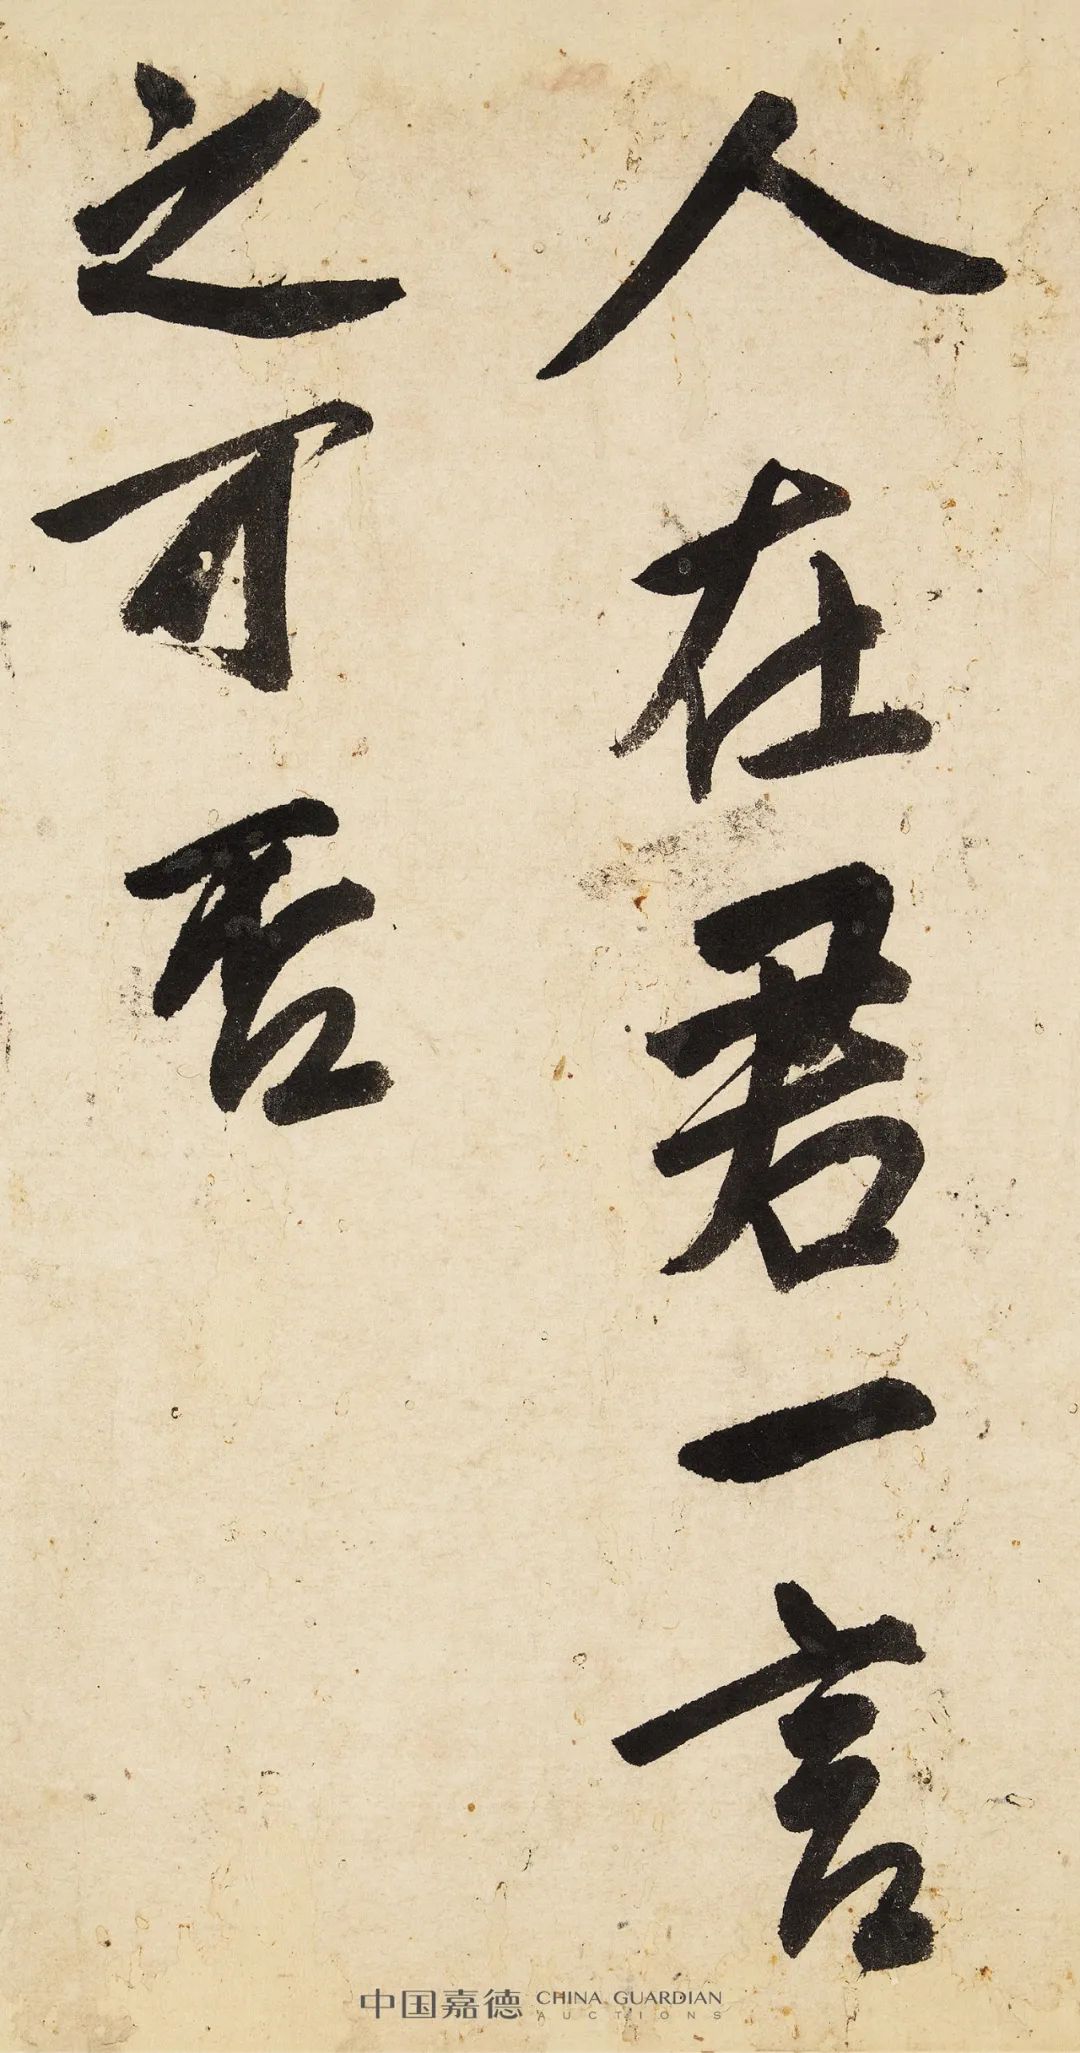 人在君一言
之可否
中国嘉德 CHINA GUARDIAN
AUCTIONS